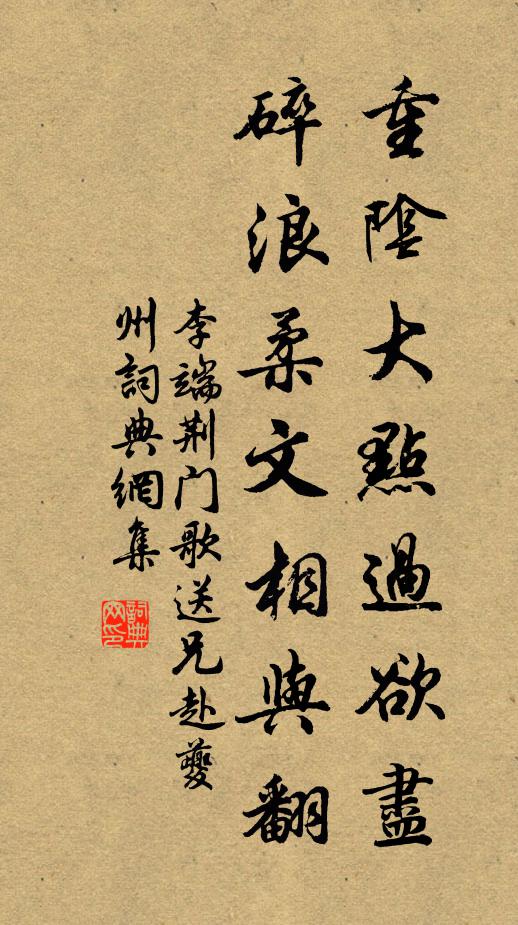 重陰大點過欲盡
碎浪柔文相與翻
李端荆门歌送兄赴夔
州詞典網集
詞典
网印